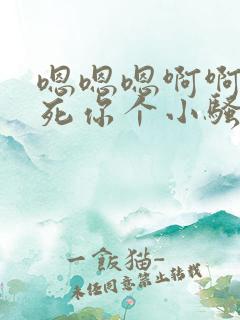 嗯嗯嗯啊啊
死你个小骚
一飯猫-
未经同意禁止转载